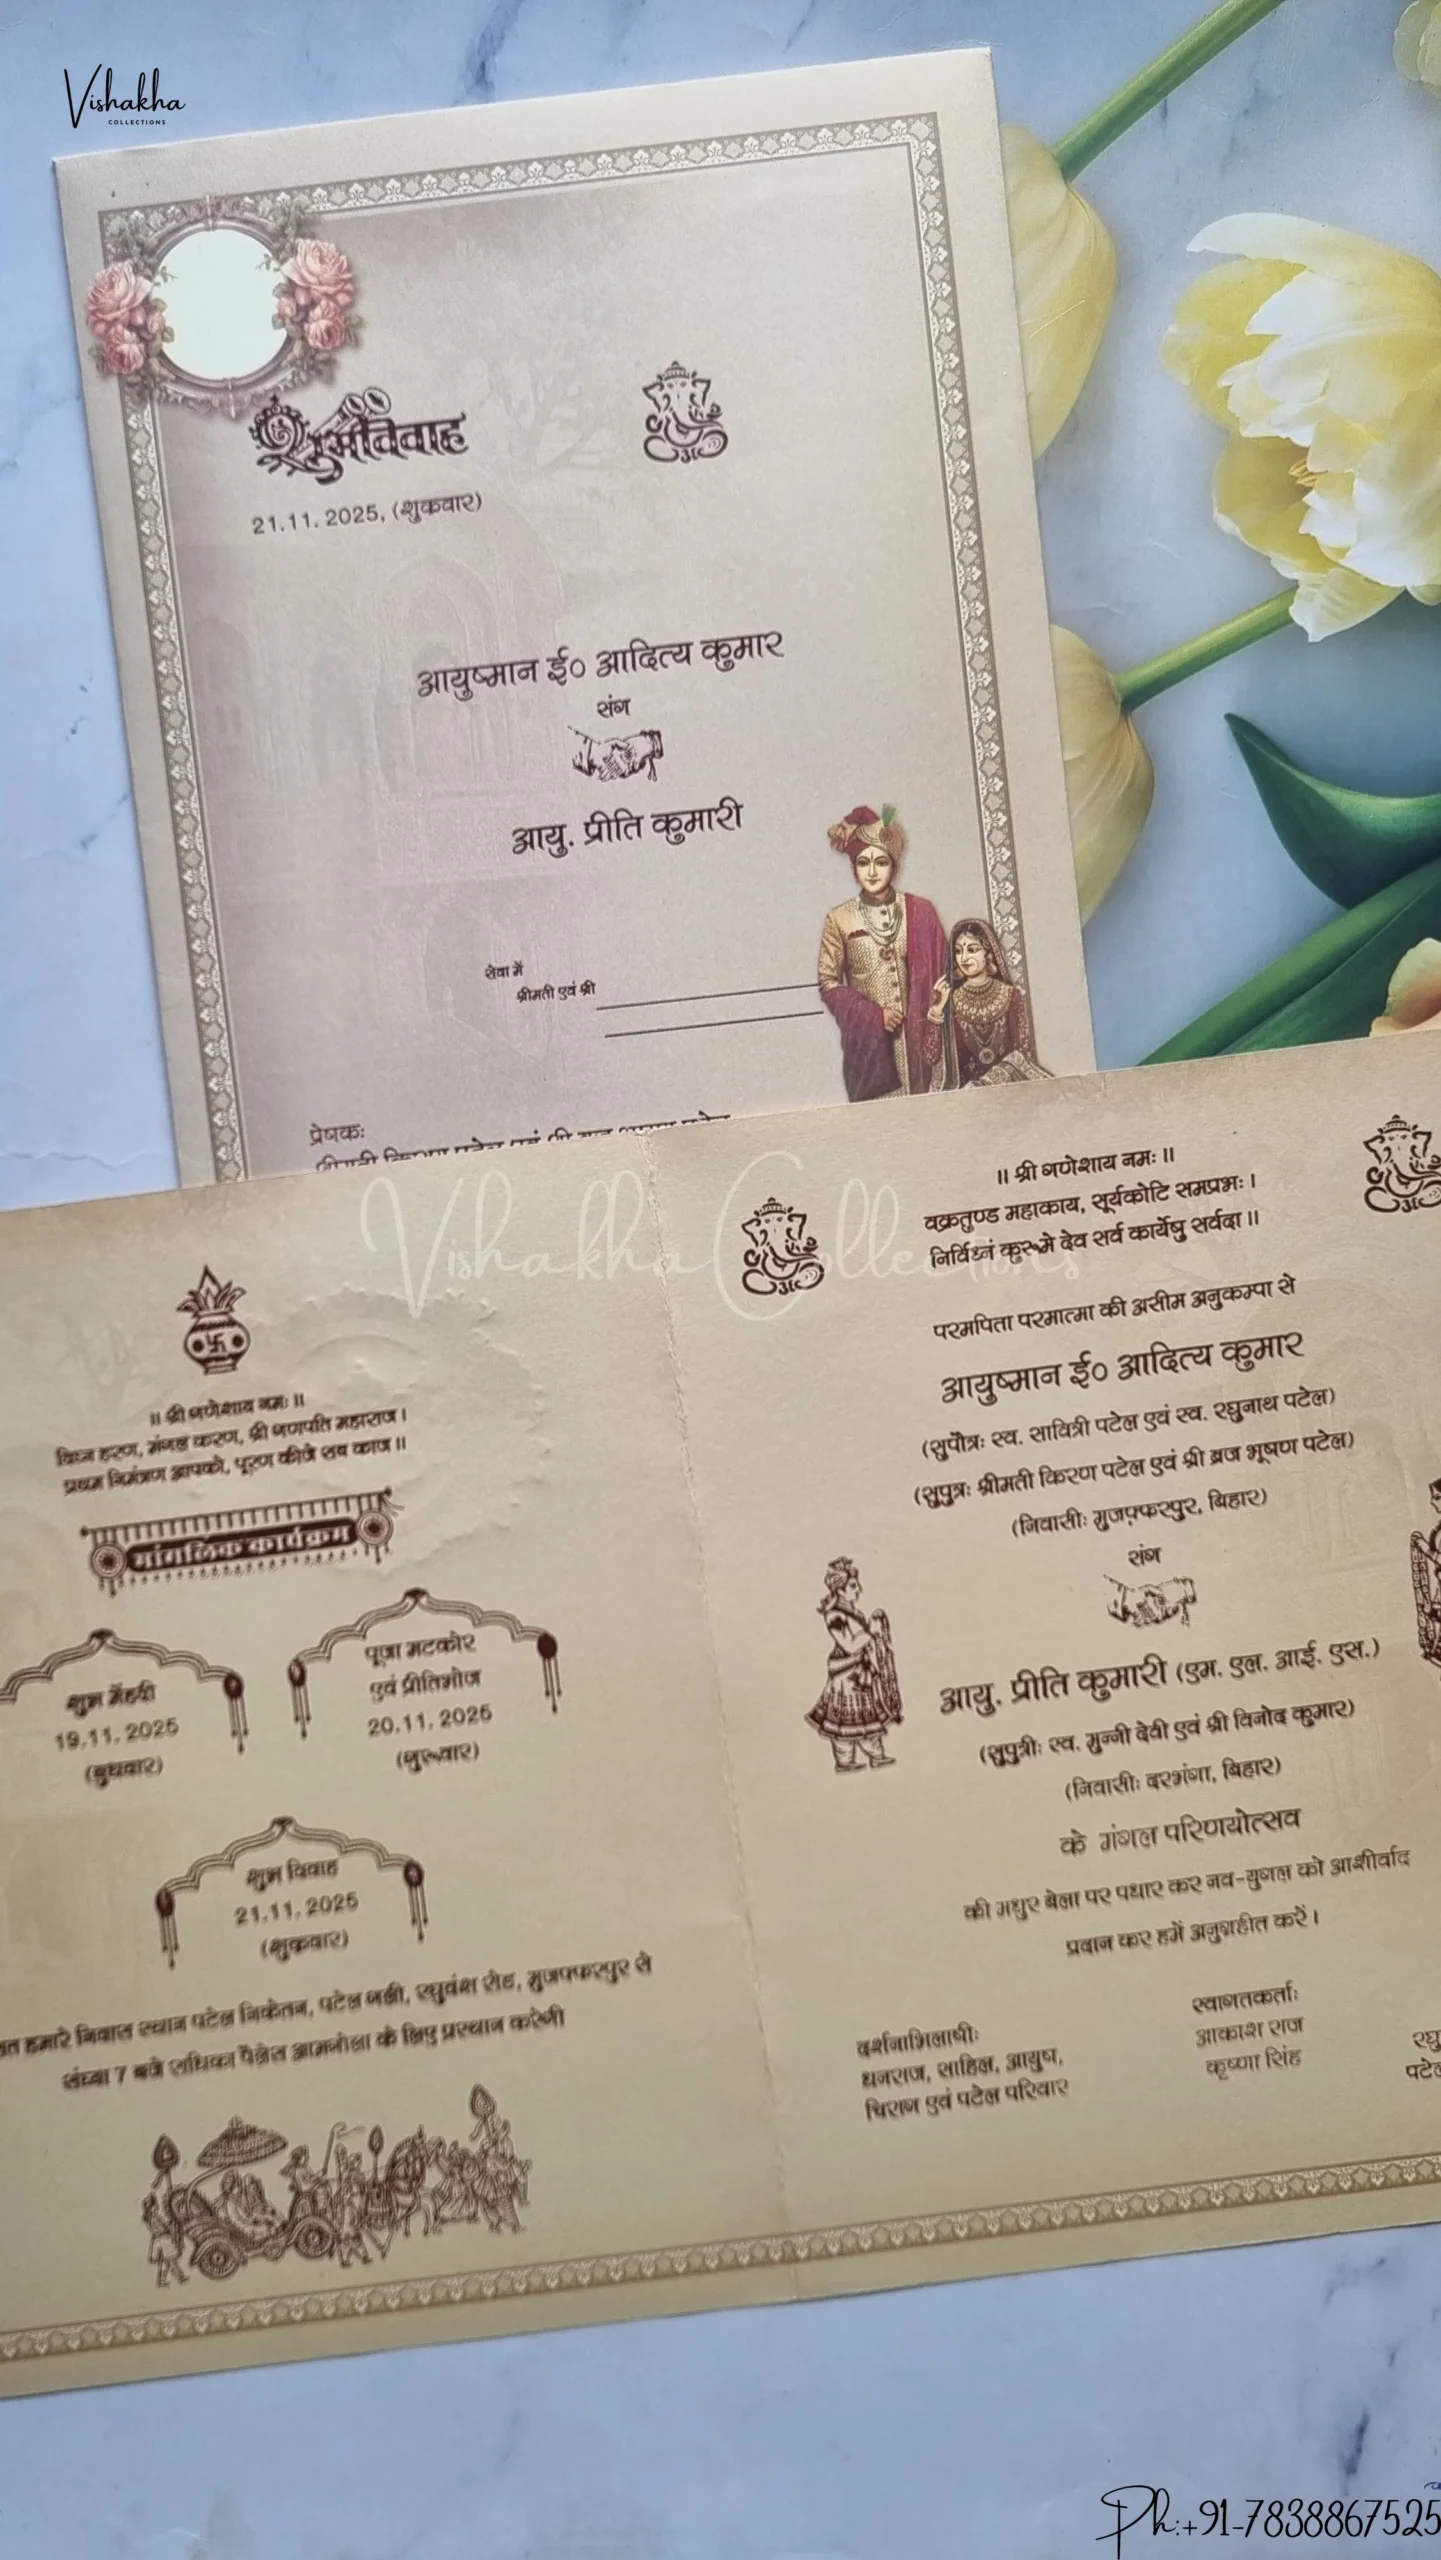 Vishakha
COLLECTIONS
शुभ विवाह
21.11.2025, (शुक्रवार)
आयुष्मान ई० आदित्य कुमार
संग
आयु. प्रीति कुमारी
सेवा में
श्रीमती एवं श्री
प्रेषकः
Vishakha Collections
॥ श्री गणेशाय नमः ॥
विघ्न हरण, मंगल करण, श्री गणपति महाराज।
प्रथम निमंत्रण आपको, पूरण कीजे सब काज॥
मांगलिक कार्यक्रम
शुभ मेंहदी
19.11.2025
(बुधवार)
पूजा मटकोर
एवं प्रीतिभोज
20.11.2025
(गुरूवार)
शुभ विवाह
21.11.2025
(शुक्रवार)
हमारे निवास स्थान पटेल निकेतन, पटेल गली, रघुवंश रोड, मुजफ्फरपुर से
संध्या 7 बजे राधिका पैलेस आमगोला के लिए प्रस्थान करेगी
॥ श्री गणेशाय नमः ॥
वक्रतुण्ड महाकाय, सूर्यकोटि समप्रभः।
निर्विघ्नं कुरूमे देव सर्व कार्येषु सर्वदा॥
परमपिता परमात्मा की असीम अनुकम्पा से
आयुष्मान ई० आदित्य कुमार
(सुपौत्रः स्व. सावित्री पटेल एवं स्व. रघुनाथ पटेल)
(सुपुत्रः श्रीमती किरण पटेल एवं श्री ब्रज भूषण पटेल)
(निवासीः मुजफ़्फरपुर, बिहार)
संग
आयु. प्रीति कुमारी (एम. एल. आई. एस.)
(सुपुत्रीः स्व. मुन्नी देवी एवं श्री विनोद कुमार)
(निवासीः दरभंगा, बिहार)
के मंगल परिणयोत्सव
की मधुर बेला पर पधार कर नव-युगल को आशीर्वाद
प्रदान कर हमें अनुग्रहीत करें।
दर्शनाभिलाषीः
धनराज, साहिल, आयुष,
चिराग एवं पटेल परिवार
स्वागतकर्ताः
आकाश राज
कृष्णा सिंह
Ph:+91-7838867525